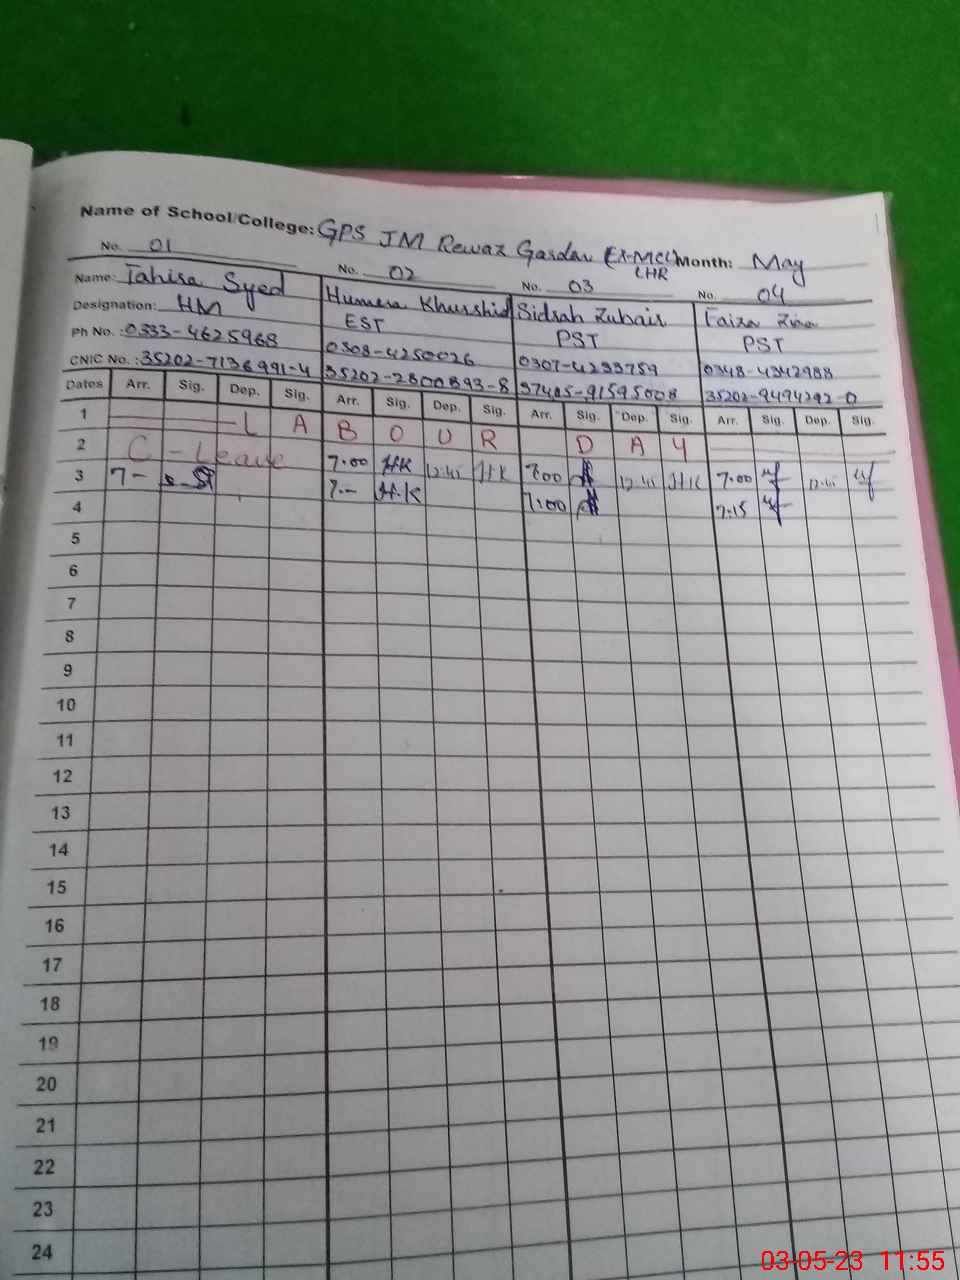 Name of School/College: GPS JM Rewaz Garden (Ex-MCL) LHR Month: May
No. 01 No. 02 No. 03 No. 04
Name: Tahira Syed Humera Khurshid Sidrah Zubair Faiza
Designation: HM EST PST PST
Ph No.: 0333-4625968 0308-4250026 0307-4233759 0348-4342988
CNIC No.: 35202-7136991-4 35202-2800893-8 37405-9159500-8 35202-9494292-0
Dates Arr. Sig. Dep. Sig. Arr. Sig. Dep. Sig. Arr. Sig. Dep. Sig. Arr. Sig. Dep. Sig.
1 L A B O U R D A Y
2 C-Leave 7.00 HK 12.45 H.K 7:00 12.45 H.K 7.00 12.45
3 7- 7.- H.K 7:00 7.15
4
5
6
7
8
9
10
11
12
13
14
15
16
17
18
19
20
21
22
23
24
03-05-23 11:55